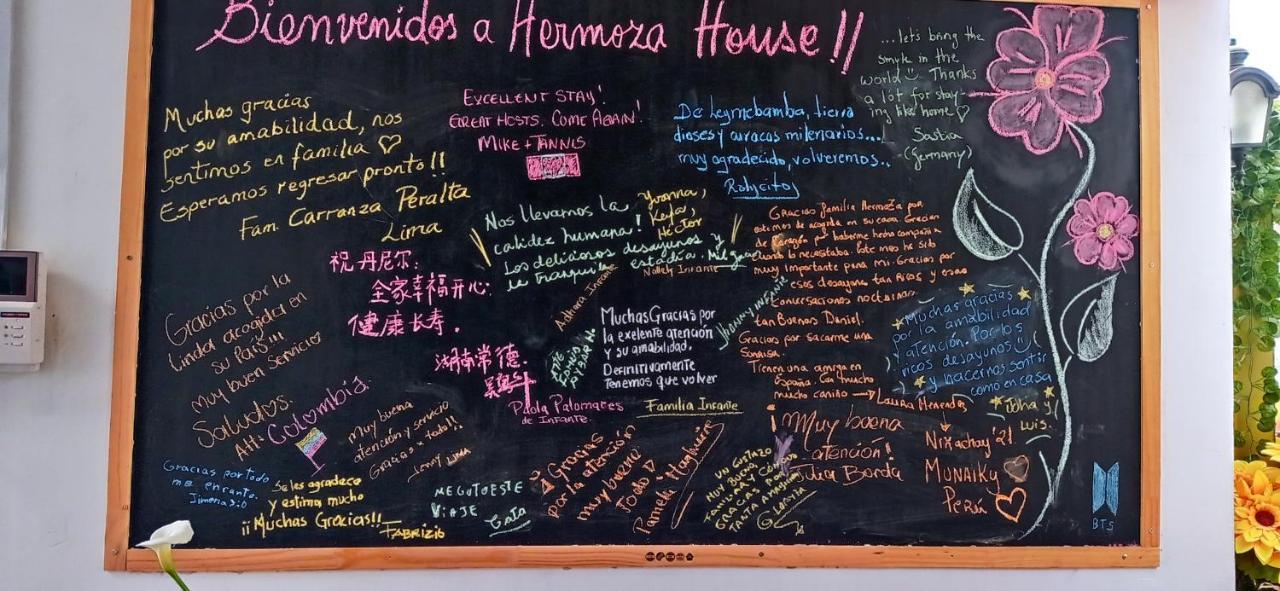 Bienvenidos a Hermoza House !!
Muchas gracias
por su amabilidad, nos
sentimos en familia ♡
Esperamos regresar pronto!!
Fam. Carranza Peralta
Lima
EXCELLENT STAY!
GREAT HOSTS. COME AGAIN!
MIKE + TANNIS
De Leymebamba, tierra
dioses y curacas milenarios...
muy agradecido, volveremos..
Ralycitos
...let's bring the
smyle in the
world Thanks
a lot for stay-
ing like home ♡
Saskia
(Germany)
Nos llevamos la
calidez humana!
Los deliciosos desayunos y
la tranquila estadía.
Yvonna,
Keyla,
Héctor
Gracias familia Hermoza por
de corazón por haberme hecho compañía
cuando lo necesitaba. Este mes ha sido
muy importante para mi. Gracias por
esos desayunos tan ricos y esas
conversaciones nocturnas
tan buenas Daniel.
Gracias por sacarme una
sonrisa.
Tienen una amiga en
España. Con mucho
mucho cariño → Laura Menendes
祝丹尼尔:
全家幸福开心.
健康长寿.
湖南常德.
Gracias por la
linda acogida en
su País!!!
muy buen servicio
Saludos.
Att: Colombia.
Nolleli Infante
Jhanny Infante
Muchas Gracias por
la exelente atención
y su amabilidad,
Definitivamente
Tenemos que volver
Familia Infante
Paola Palomares
de Infante
Muchas gracias
por la amabilidad
y atención. Por los
ricos desayunos
y hacernos sentir
como en casa
Joha y
Luis.
Muy buena
atención y servicio
Gracias x todo!!
Jenny Lima
Gracias por todo
me encantó.
Jimena
Se les agradece
y estima mucho
¡¡Muchas Gracias!!
FABRIZIO
ME GUTO ESTE
VIAJE
Gracias
por la atención
muy bueno
todo ♡
Pamela Holguin
UN GUSTAZO
MUY BUENA
FAMILIA Y CÓMODO
GRACIAS POR
TANTA AMABILIDAD
Muy buena
atención!
Julia Borda
Nixachay '21
MUNAIKY
Perú
BTS